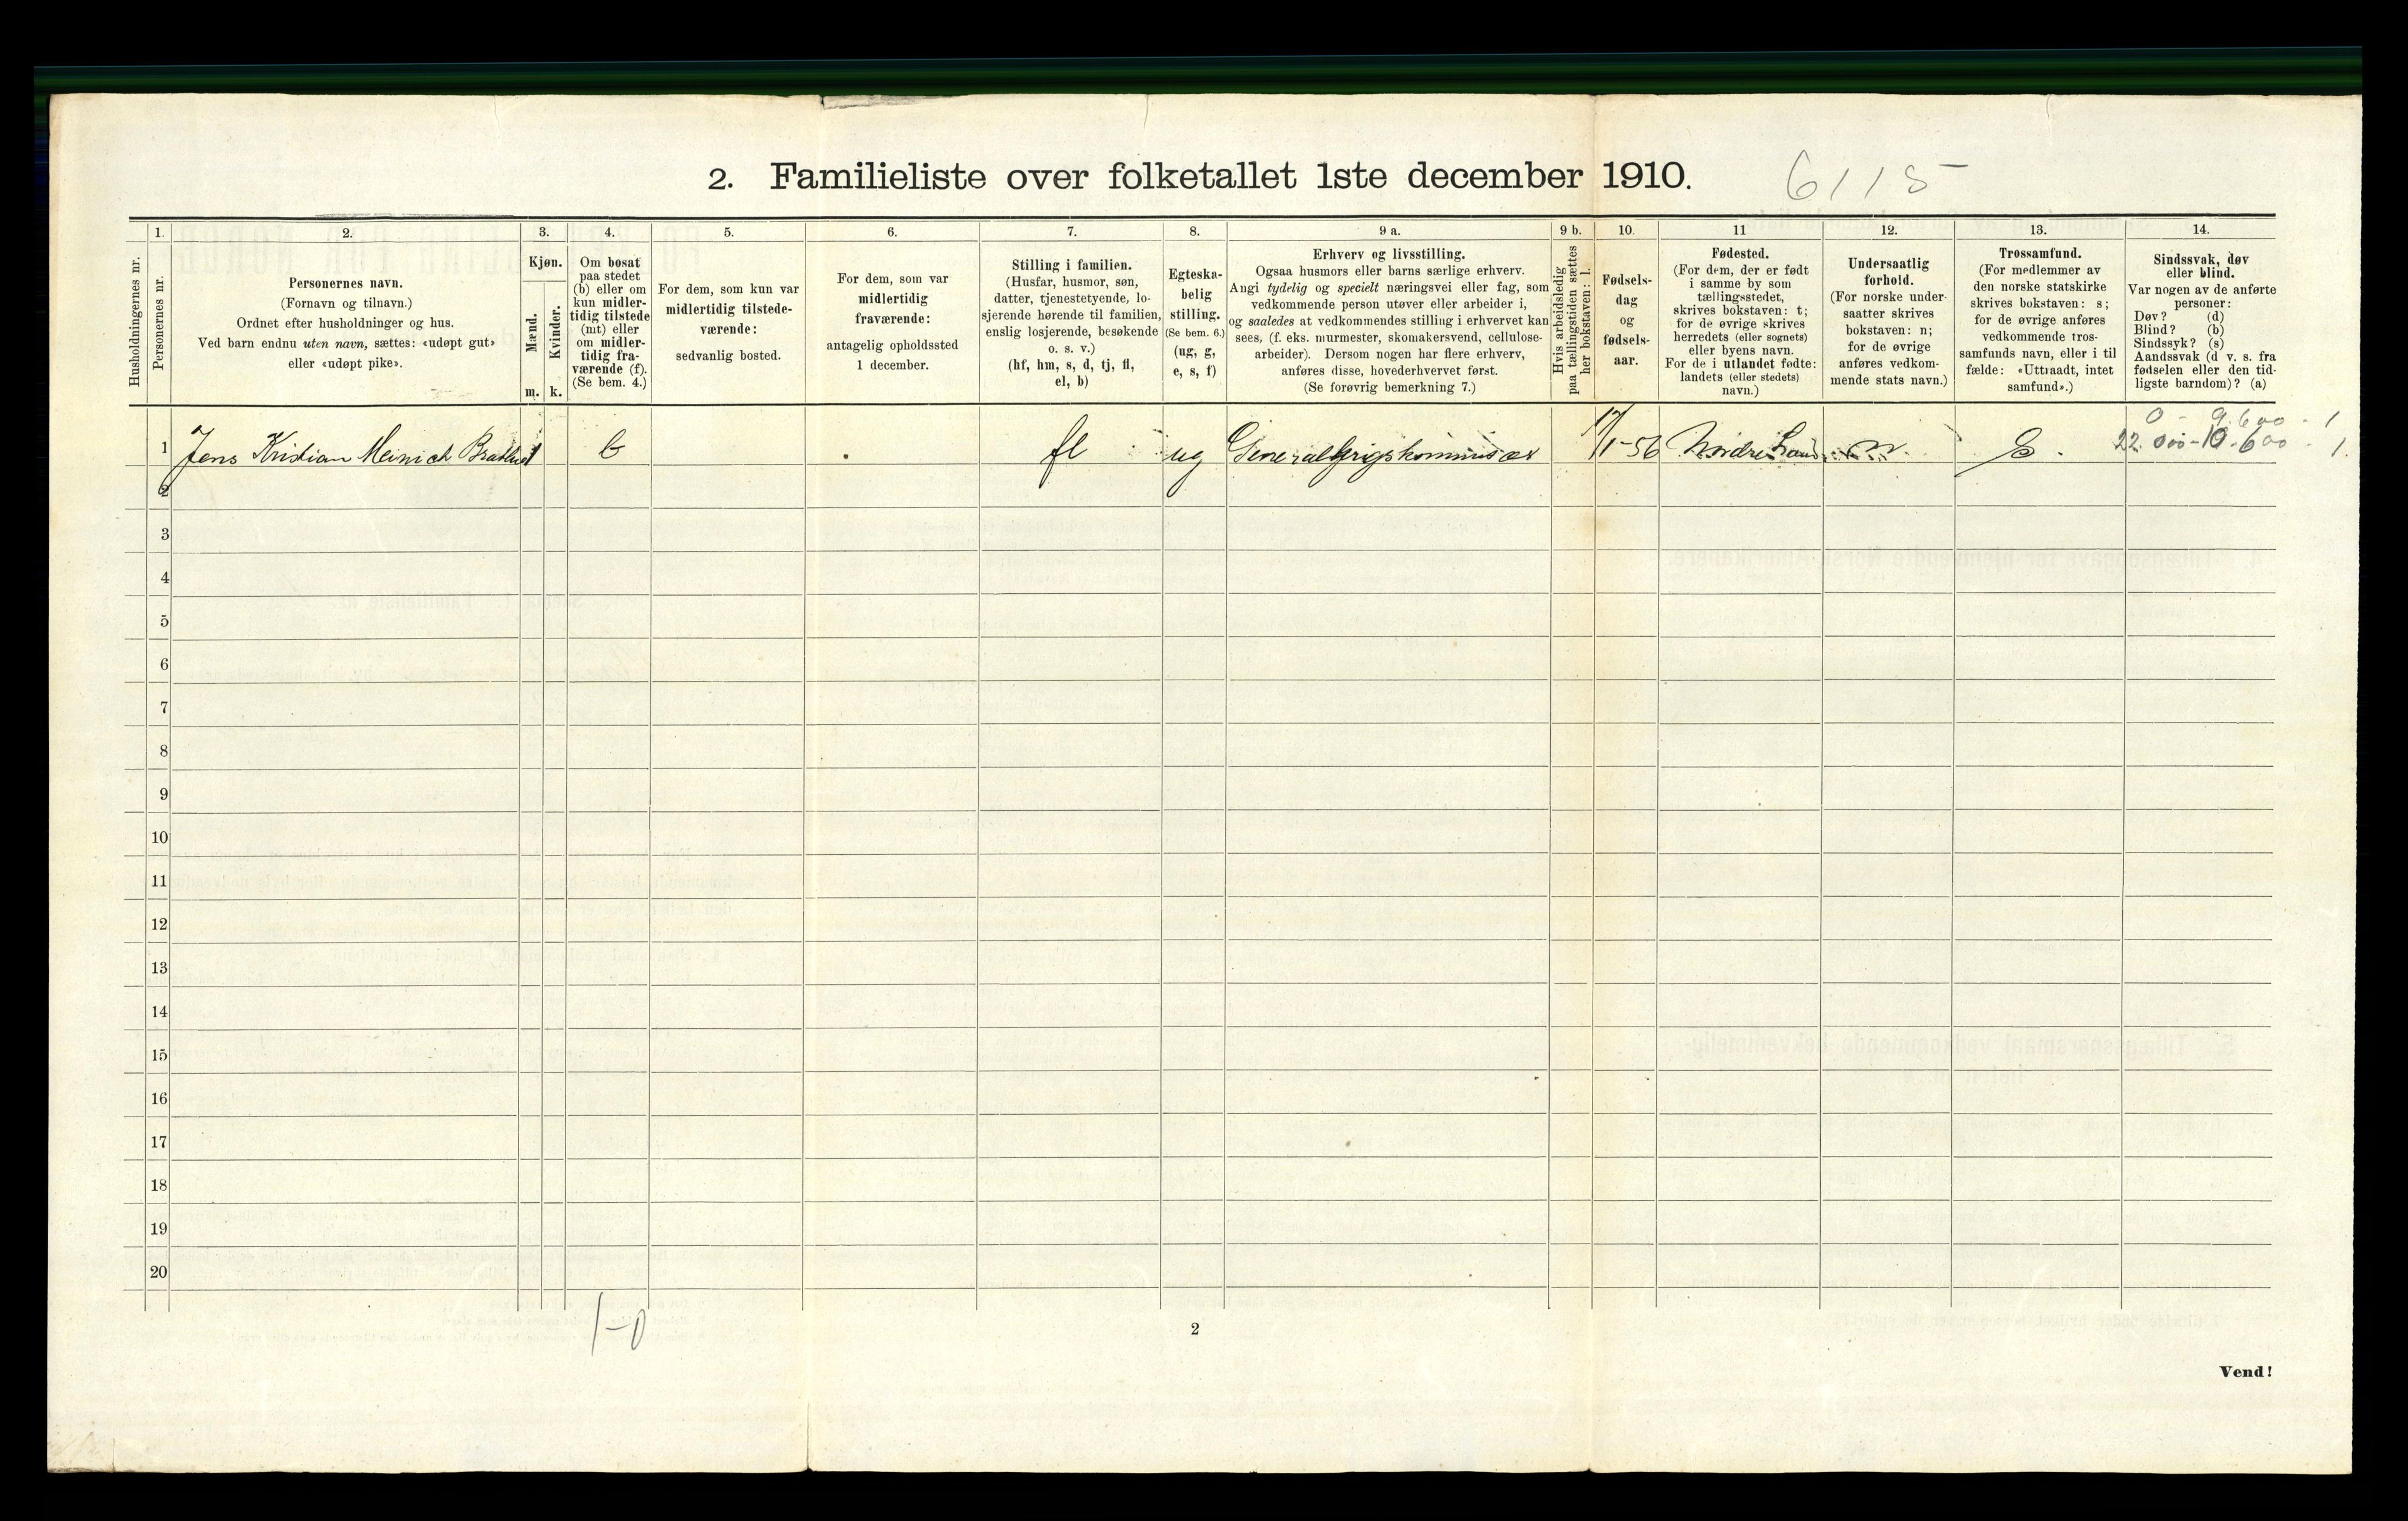 2. Familieliste over folketallet 1ste december 1910.
6115
Husholdningernes nr.
1.
Personernes nr.
2.
Personernes navn.
(Fornavn og tilnavn.)
Ordnet efter husholdninger og hus.
Ved barn endnu uten navn, sættes: «udøpt gut»
eller «udøpt pike».
3.
Kjøn.
Mænd.
Kvinder.
m. k.
4.
Om bosat
paa stedet
(b) eller om
kun midler-
tidig tilstede
(mt) eller
om midler-
tidig fra-
værende (f).
(Se bem. 4.)
5.
For dem, som kun var
midlertidig tilstede-
værende:
sedvanlig bosted.
6.
For dem, som var
midlertidig
fraværende:
antagelig opholdssted
1 december.
7.
Stilling i familien.
(Husfar, husmor, søn,
datter, tjenestetyende, lo-
sjerende hørende til familien,
enslig losjerende, besøkende
o. s. v.)
(hf, hm, s, d, tj, fl,
el, b)
8.
Egteska-
belig
stilling.
(Se bem. 6.)
(ug, g,
e, s, f)
9 a.
Erhverv og livsstilling.
Ogsaa husmors eller barns særlige erhverv.
Angi tydelig og specielt næringsvei eller fag, som
vedkommende person utøver eller arbeider i,
og saaledes at vedkommendes stilling i erhvervet kan
sees, (f. eks. murmester, skomakersvend, cellulose-
arbeider). Dersom nogen har flere erhverv,
anføres disse, hovederhvervet først.
(Se forøvrig bemerkning 7.)
9 b.
Hvis arbeidsledig
paa tællingstiden sættes
her bokstaven: l.
10.
Fødsels-
dag
og
fødsels-
aar.
11
Fødested.
(For dem, der er født
i samme by som
tællingsstedet,
skrives bokstaven: t;
for de øvrige skrives
herredets (eller sognets)
eller byens navn.
For de i utlandet fødte:
landets (eller stedets)
navn.)
12.
Undersaatlig
forhold.
(For norske under-
saatter skrives
bokstaven: n;
for de øvrige
anføres vedkom-
mende stats navn.)
13.
Trossamfund.
(For medlemmer av
den norske statskirke
skrives bokstaven: s;
for de øvrige anføres
vedkommende tros-
samfunds navn, eller i til
fælde: «Uttraadt, intet
samfund».)
14.
Sindssvak, døv
eller blind.
Var nogen av de anførte
personer:
Døv? (d)
Blind? (b)
Sindssyk? (s)
Aandssvak (d v. s. fra
fødselen eller den tid-
ligste barndom)? (a)
0 - 9.600 - 1
1 Jens Kristian Meinich Bratlie 1 b fl ug Generalkrigskommisær 17/1-56 Nordre Land n. S. 22.000-10.600 - 1.
2
3
4
5
6
7
8
9
10
11
12
13
14
15
16
17
18
19
20
1-0
2
Vend!